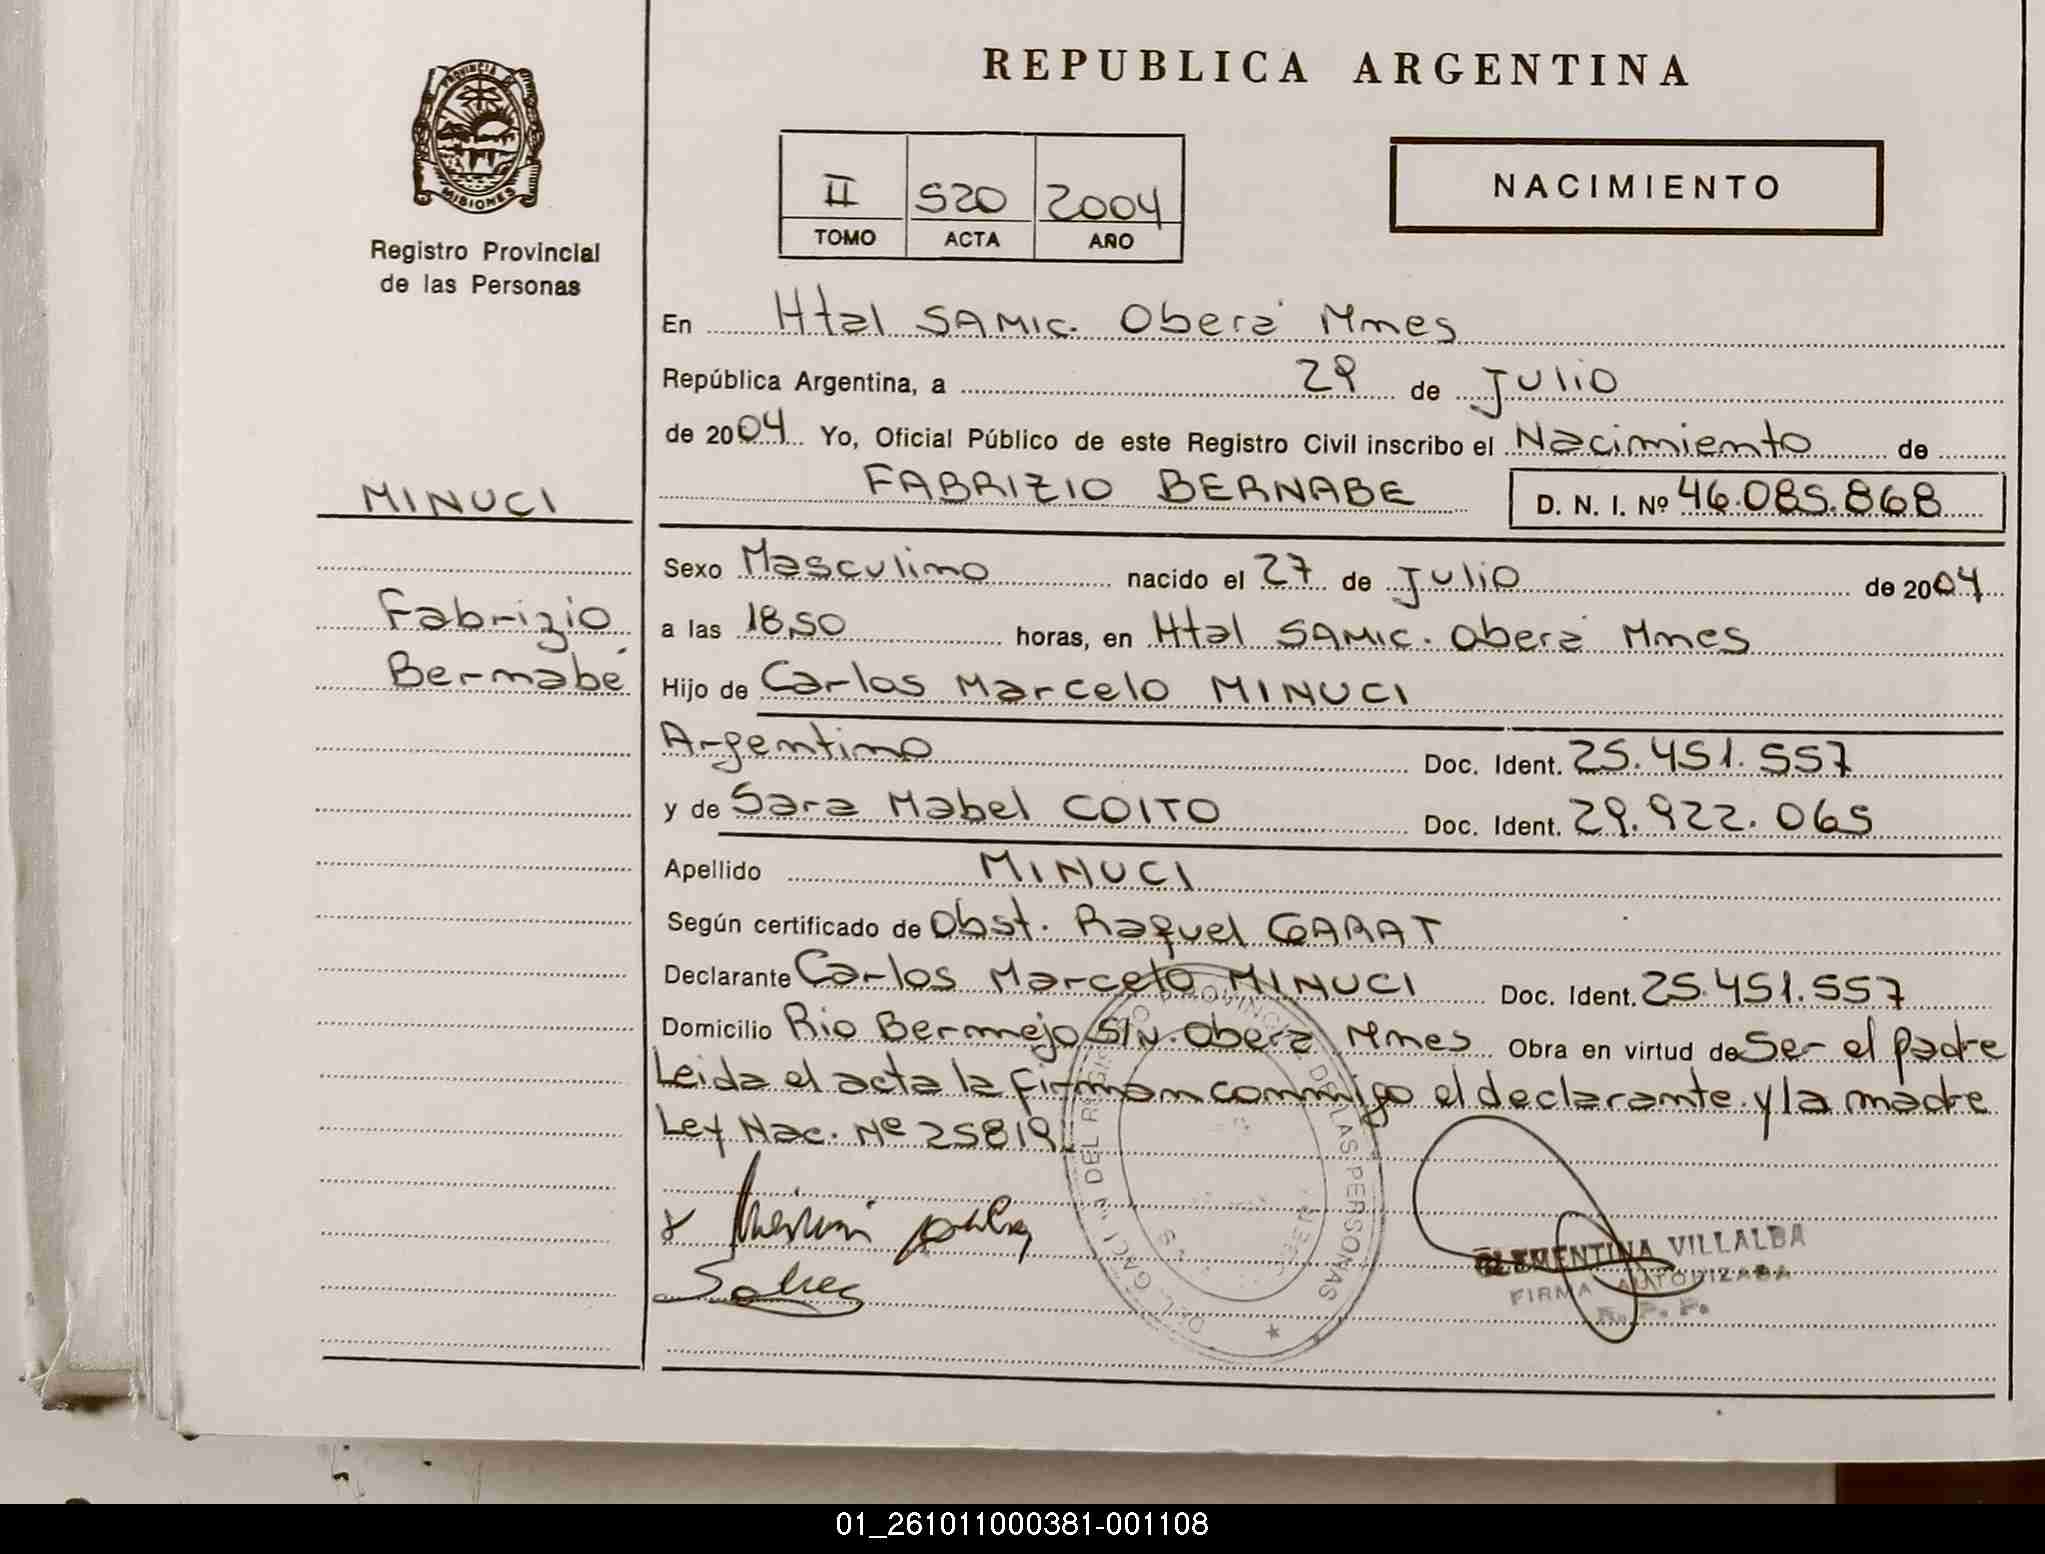 REPUBLICA ARGENTINA
PROVINCIA
MISIONES
Registro Provincial
de las Personas
II 520 2004
TOMO ACTA AÑO
NACIMIENTO
En Htal SAMIC. Oberá Mnes
República Argentina, a 29 de Julio
de 2004 Yo, Oficial Público de este Registro Civil inscribo el Nacimiento de
FABRIZIO BERNABE D. N. I. Nº 46.085.868
MINUCI
Fabrizio
Bernabé
Sexo Masculino nacido el 27 de Julio de 2004
a las 18,50 horas, en Htal SAMIC. Oberá Mnes
Hijo de Carlos Marcelo MINUCI
Argentino Doc. Ident. 25.451.557
y de Sara Mabel COITO Doc. Ident. 29.922.065
Apellido MINUCI
Según certificado de Obst. Raquel GARAT
Declarante Carlos Marcelo MINUCI Doc. Ident. 25.451.557
Domicilio Rio Bermejo S/N. Obera Mnes Obra en virtud de Ser el padre
Leida el acta la firman conmigo el declarante y la madre
Ley Nac. Nº 25819.
DEL REGISTRO PROVINCIAL DE LAS PERSONAS
CLEMENTINA VILLALBA
FIRMA AUTORIZADA
R. P. P.
01_261011000381-001108